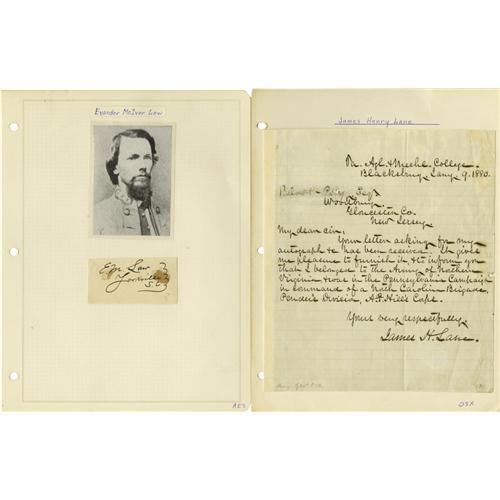 Evander McIver Law
E M Law
Yorkville
S.C.
AES
James Henry Lane
Va. Agl. & Mechl. College.
Blacksburg Jany 9. 1880.
Esqr
Woodbury
Gloucester Co.
New Jersey.
My dear sir.
Your letter asking for my
autograph &c has been received. It gives
me pleasure to furnish it & to inform you
that I belonged to the Army of Northern
Virginia & was in the Pennsylvania Campaign
in command of a North Carolina Brigade,
Pender's Division, A.P. Hill's Corps.
Yours very respectfully,
James H. Lane